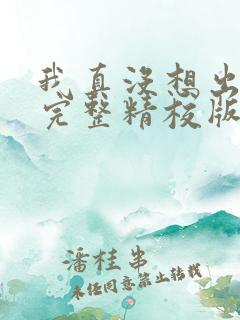 我真没想出
完整精校版
潘桂串
未经同意禁止转载